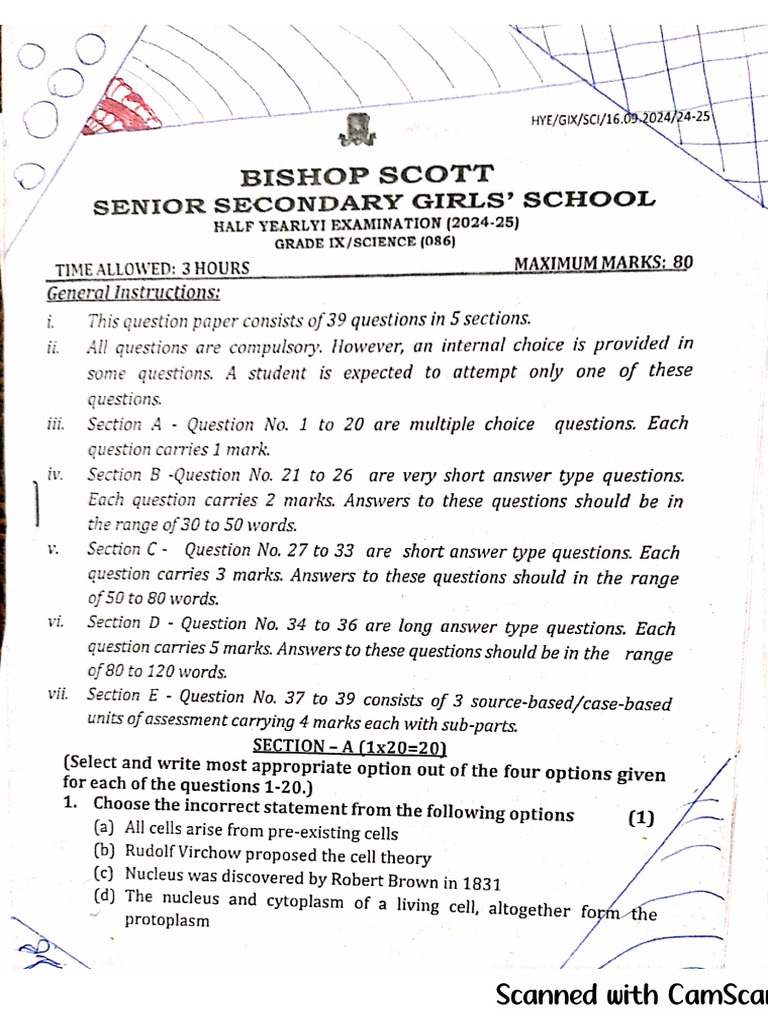 HYE/GIX/SCI/16.09.2024/24-25
BISHOP SCOTT
SENIOR SECONDARY GIRLS' SCHOOL
HALF YEARLYI EXAMINATION (2024-25)
GRADE IX/SCIENCE (086)
TIME ALLOWED: 3 HOURS MAXIMUM MARKS: 80
General Instructions:
i. This question paper consists of 39 questions in 5 sections.
ii. All questions are compulsory. However, an internal choice is provided in
some questions. A student is expected to attempt only one of these
questions.
iii. Section A - Question No. 1 to 20 are multiple choice questions. Each
question carries 1 mark.
iv. Section B -Question No. 21 to 26 are very short answer type questions.
Each question carries 2 marks. Answers to these questions should be in
the range of 30 to 50 words.
v. Section C - Question No. 27 to 33 are short answer type questions. Each
question carries 3 marks. Answers to these questions should in the range
of 50 to 80 words.
vi. Section D - Question No. 34 to 36 are long answer type questions. Each
question carries 5 marks. Answers to these questions should be in the range
of 80 to 120 words.
vii. Section E - Question No. 37 to 39 consists of 3 source-based/case-based
units of assessment carrying 4 marks each with sub-parts.
SECTION – A (1x20=20)
(Select and write most appropriate option out of the four options given
for each of the questions 1-20.)
1. Choose the incorrect statement from the following options (1)
(a) All cells arise from pre-existing cells
(b) Rudolf Virchow proposed the cell theory
(c) Nucleus was discovered by Robert Brown in 1831
(d) The nucleus and cytoplasm of a living cell, altogether form the
protoplasm
Scanned with CamScan